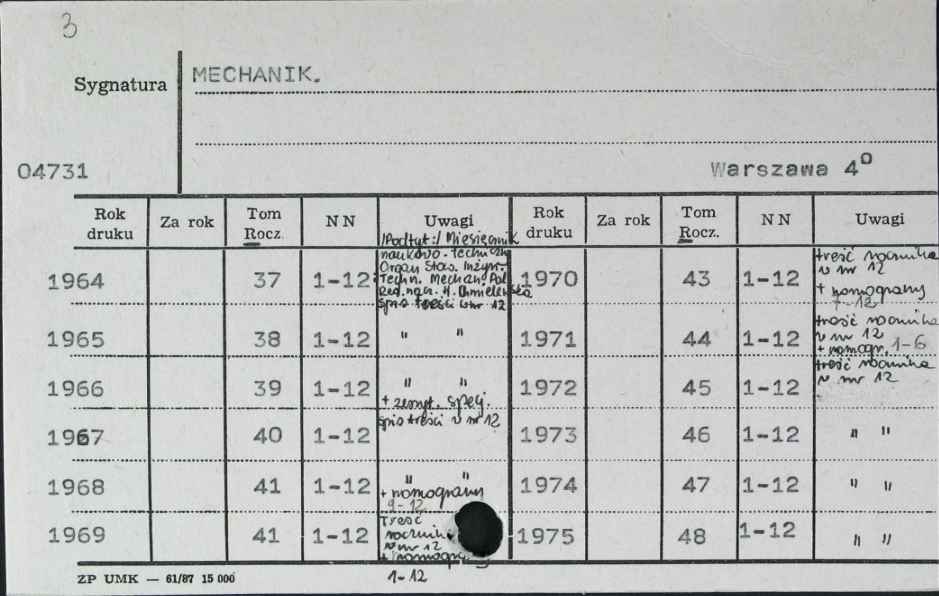 3
Sygnatura MECHANIK.
04731 Warszawa 4º
Rok druku Za rok Tom Rocz. NN Uwagi Rok druku Za rok Tom Rocz. NN Uwagi
/Podtyt:/ Miesięcznik
naukowo-techniczny
Organ Stow. Inżyn.
Techn. Mechan. Pol.
Red. nacz. H. Chmielewska
spis treści w nr 12
1964 37 1-12
1970 43 1-12
treść rocznika
w nr 12
+ nomogramy
7-12
1965 38 1-12 " "
1971 44 1-12
treść rocznika
w nr 12
+ nomogr. 1-6
1966 39 1-12 " "
+ zeszyt. spec.
1972 45 1-12
treść rocznika
w nr 12
1967 40 1-12
spis treści w nr 12
1973 46 1-12 " "
1968 41 1-12 " "
+ nomogramy
9-12
1974 47 1-12 " "
1969 41 1-12
Treść
rocznika
w nr 12
+ nomogr.
1-12
1975 48 1-12 " "
ZP UMK — 61/87 15 000